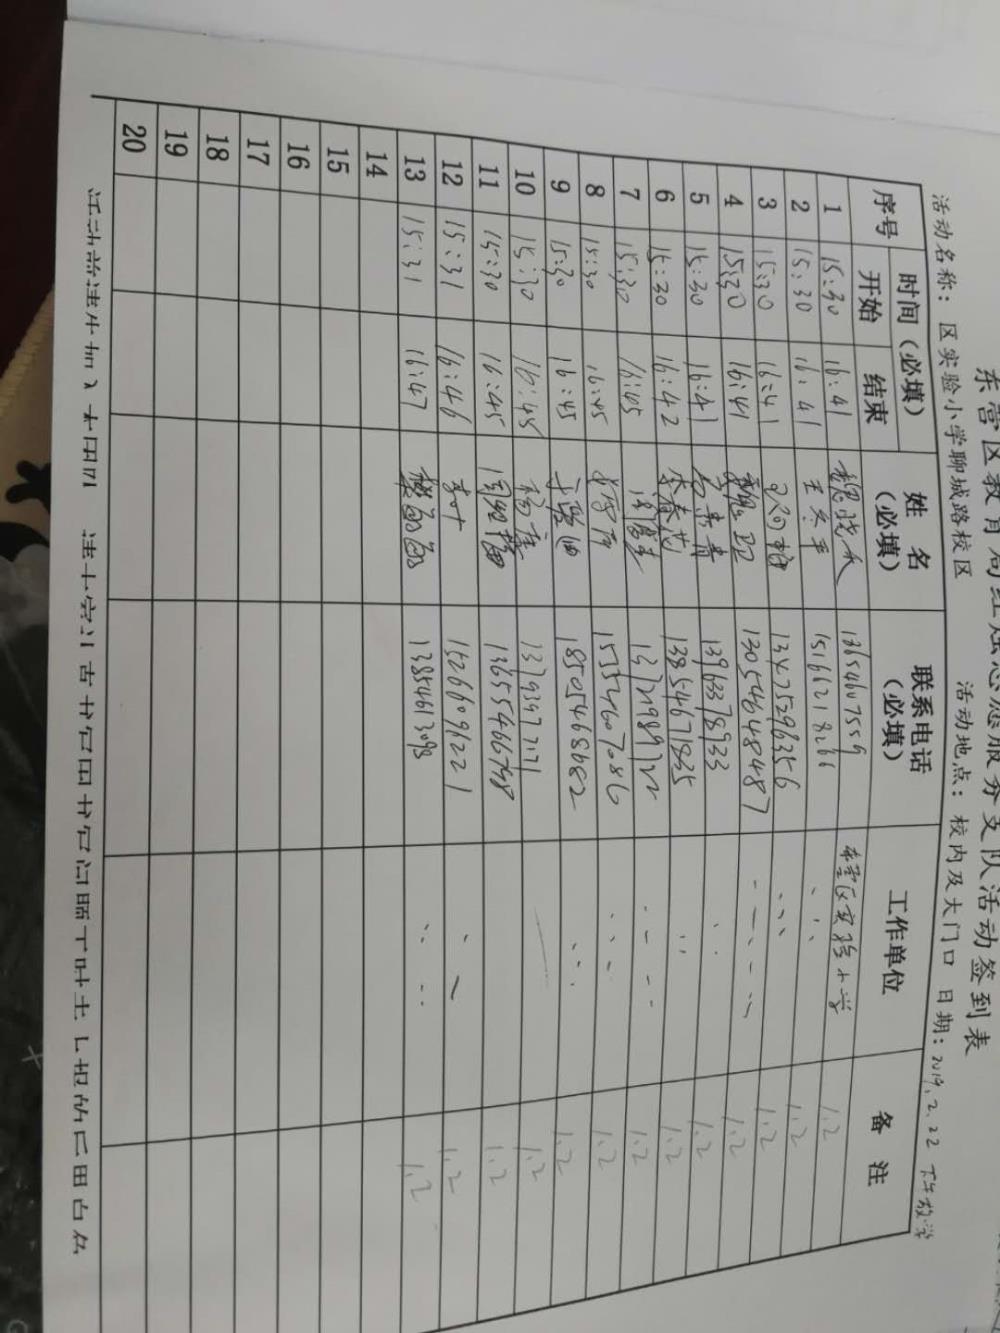 东营区教育局红烛志愿服务支队活动签到表
活动名称：区实验小学聊城路校区 活动地点：校内及大门口 日期：2019.2.22 下午放学
序号 时间（必填） 姓名（必填） 联系电话（必填） 工作单位 备注
开始 结束
1 15:30 16:41 13654607559 东营区实验小学 1.2
2 15:30 16:41 王冬平 15166218266 1.2
3 15:30 16:41 13475296356 1.2
4 15:30 16:41 魏卫 13054648487 1.2
5 15:30 16:41 13963378933 1.2
6 15:30 16:42 李春芳 13854671835 1.2
7 15:30 16:45 1.2
8 15:30 16:45 15334607086 1.2
9 15:30 16:45 18505468682 1.2
10 15:30 16:45 13793977171 1.2
11 15:30 16:45 13655466768 1.2
12 15:31 16:46 15266091221 1.2
13 15:31 16:47 13854613093 1.2
14
15
16
17
18
19
20